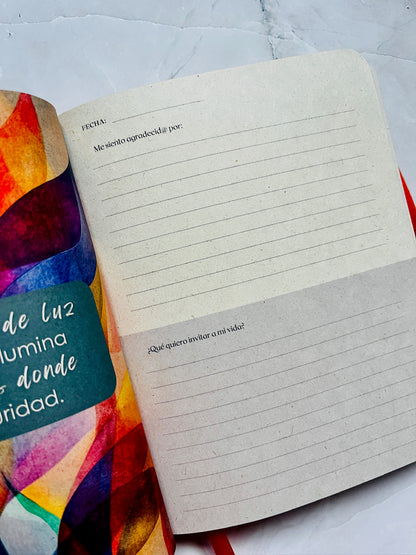 de luz
lumina
donde
uridad.
FECHA:
Me siento agradecid@ por:
¿Qué quiero invitar a mi vida?